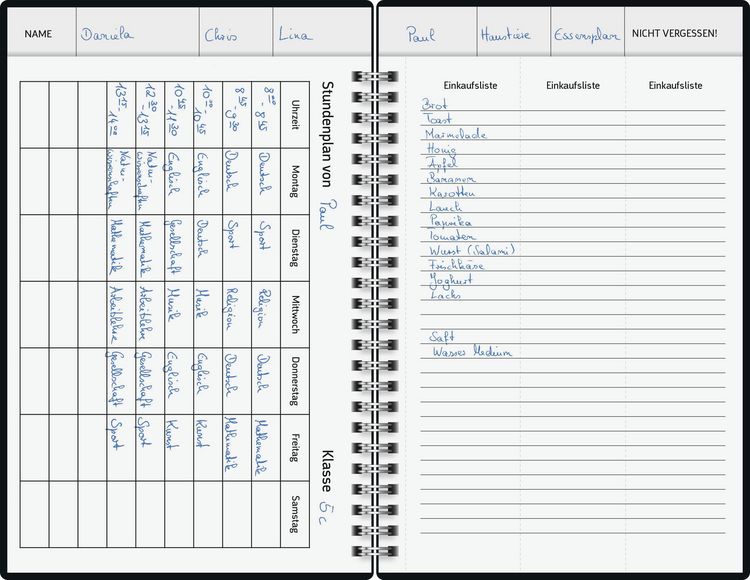 NAME Daniela Chris Lina
Stundenplan von Paul Klasse 5c
Uhrzeit Montag Dienstag Mittwoch Donnerstag Freitag Samstag
8:00 - 8:45 Deutsch Sport Religion Deutsch Mathematik
8:45 - 9:30 Deutsch Sport Religion Deutsch Mathematik
10:00 - 10:45 Englisch Deutsch Musik Englisch Kunst
10:45 - 11:30 Englisch Gesellschaft Musik Englisch Kunst
12:30 - 13:15 Naturwissenschaften Mathematik Arbeitslehre Gesellschaft Sport
13:15 - 14:00 Natur-
wissenschaften Mathematik Arbeitslehre Gesellschaft Sport
Paul Haustiere Essensplan NICHT VERGESSEN!
Einkaufsliste Einkaufsliste Einkaufsliste
Brot
Toast
Marmelade
Honig
Äpfel
Bananen
Karotten
Lauch
Paprika
Tomaten
Wurst (Salami)
Frischkäse
Joghurt
Lachs
Saft
Wasser Medium